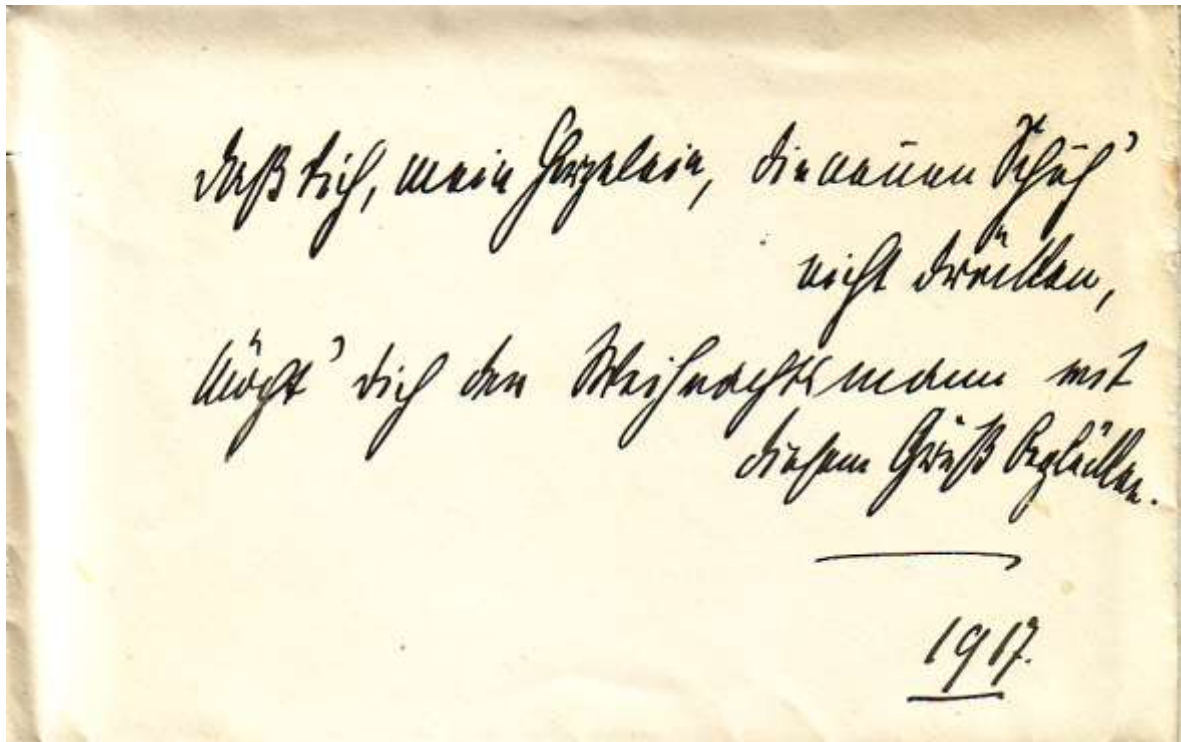 Daß dich, mein Herzelein, die neuen Schuh'
nicht drücken,
Möcht' dich der Weihnachtsmann mit
diesem Gruß beglücken.
1917.